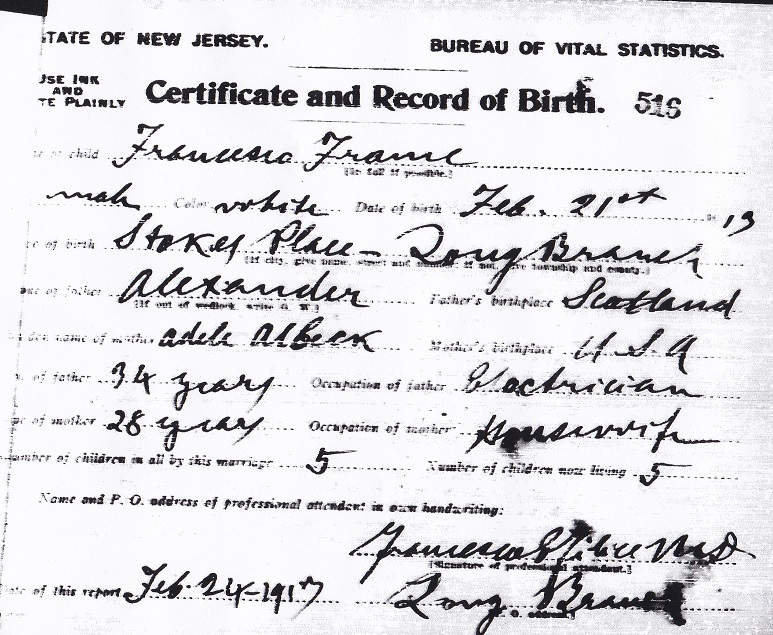 STATE OF NEW JERSEY. BUREAU OF VITAL STATISTICS.
USE INK
AND
TE PLAINLY
Certificate and Record of Birth. 516
e of child Francesco Frame
[In full if possible.]
male Color white Date of birth Feb. 21st 19 13
ce of birth Stokes Place - Long Branch
[If city, give name, street and number; if not, give township and county.]
me of father Alexander Father's birthplace Scotland
[If out of wedlock, write O. W.]
den name of mother Adele Albeck Mother's birthplace U S A
e of father 34 years Occupation of father Electrician
ge of mother 28 years Occupation of mother Housewife
number of children in all by this marriage 5 Number of children now living 5
Name and P. O. address of professional attendant in own handwriting:
Francesco M D
[Signature of professional attendant.]
ate of this report Feb 24-1917 Long Branch
O. address.]